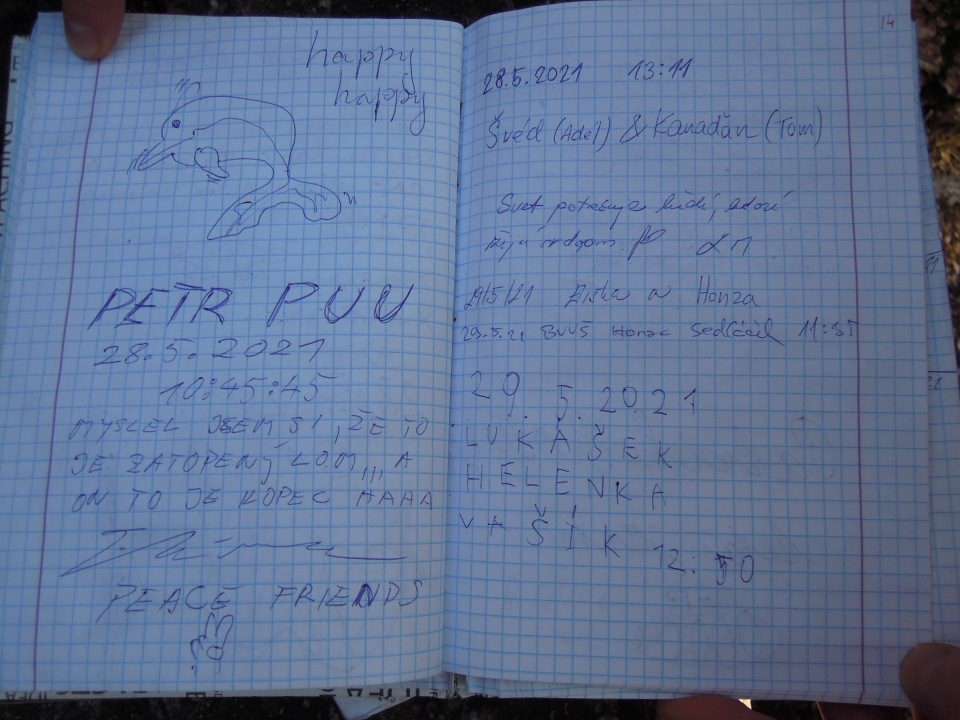 happy
happy
PETR PUU
28.5.2021
10:45:45
MYSLEL JSEM SI, ŽE TO
JE ZATOPENÝ LOM,,, A
ON TO JE KOPEC HAHA
PEACE FRIENDS
14
28.5.2021 13:11
Švéd (Adel) & Kanaďan (Tom)
Svet
29/5/21 a Honza
29.5.21 Honza Sedláček 11:35
29.5.2021
LUKÁŠEK
HELENKA
VAŠÍK 12:50